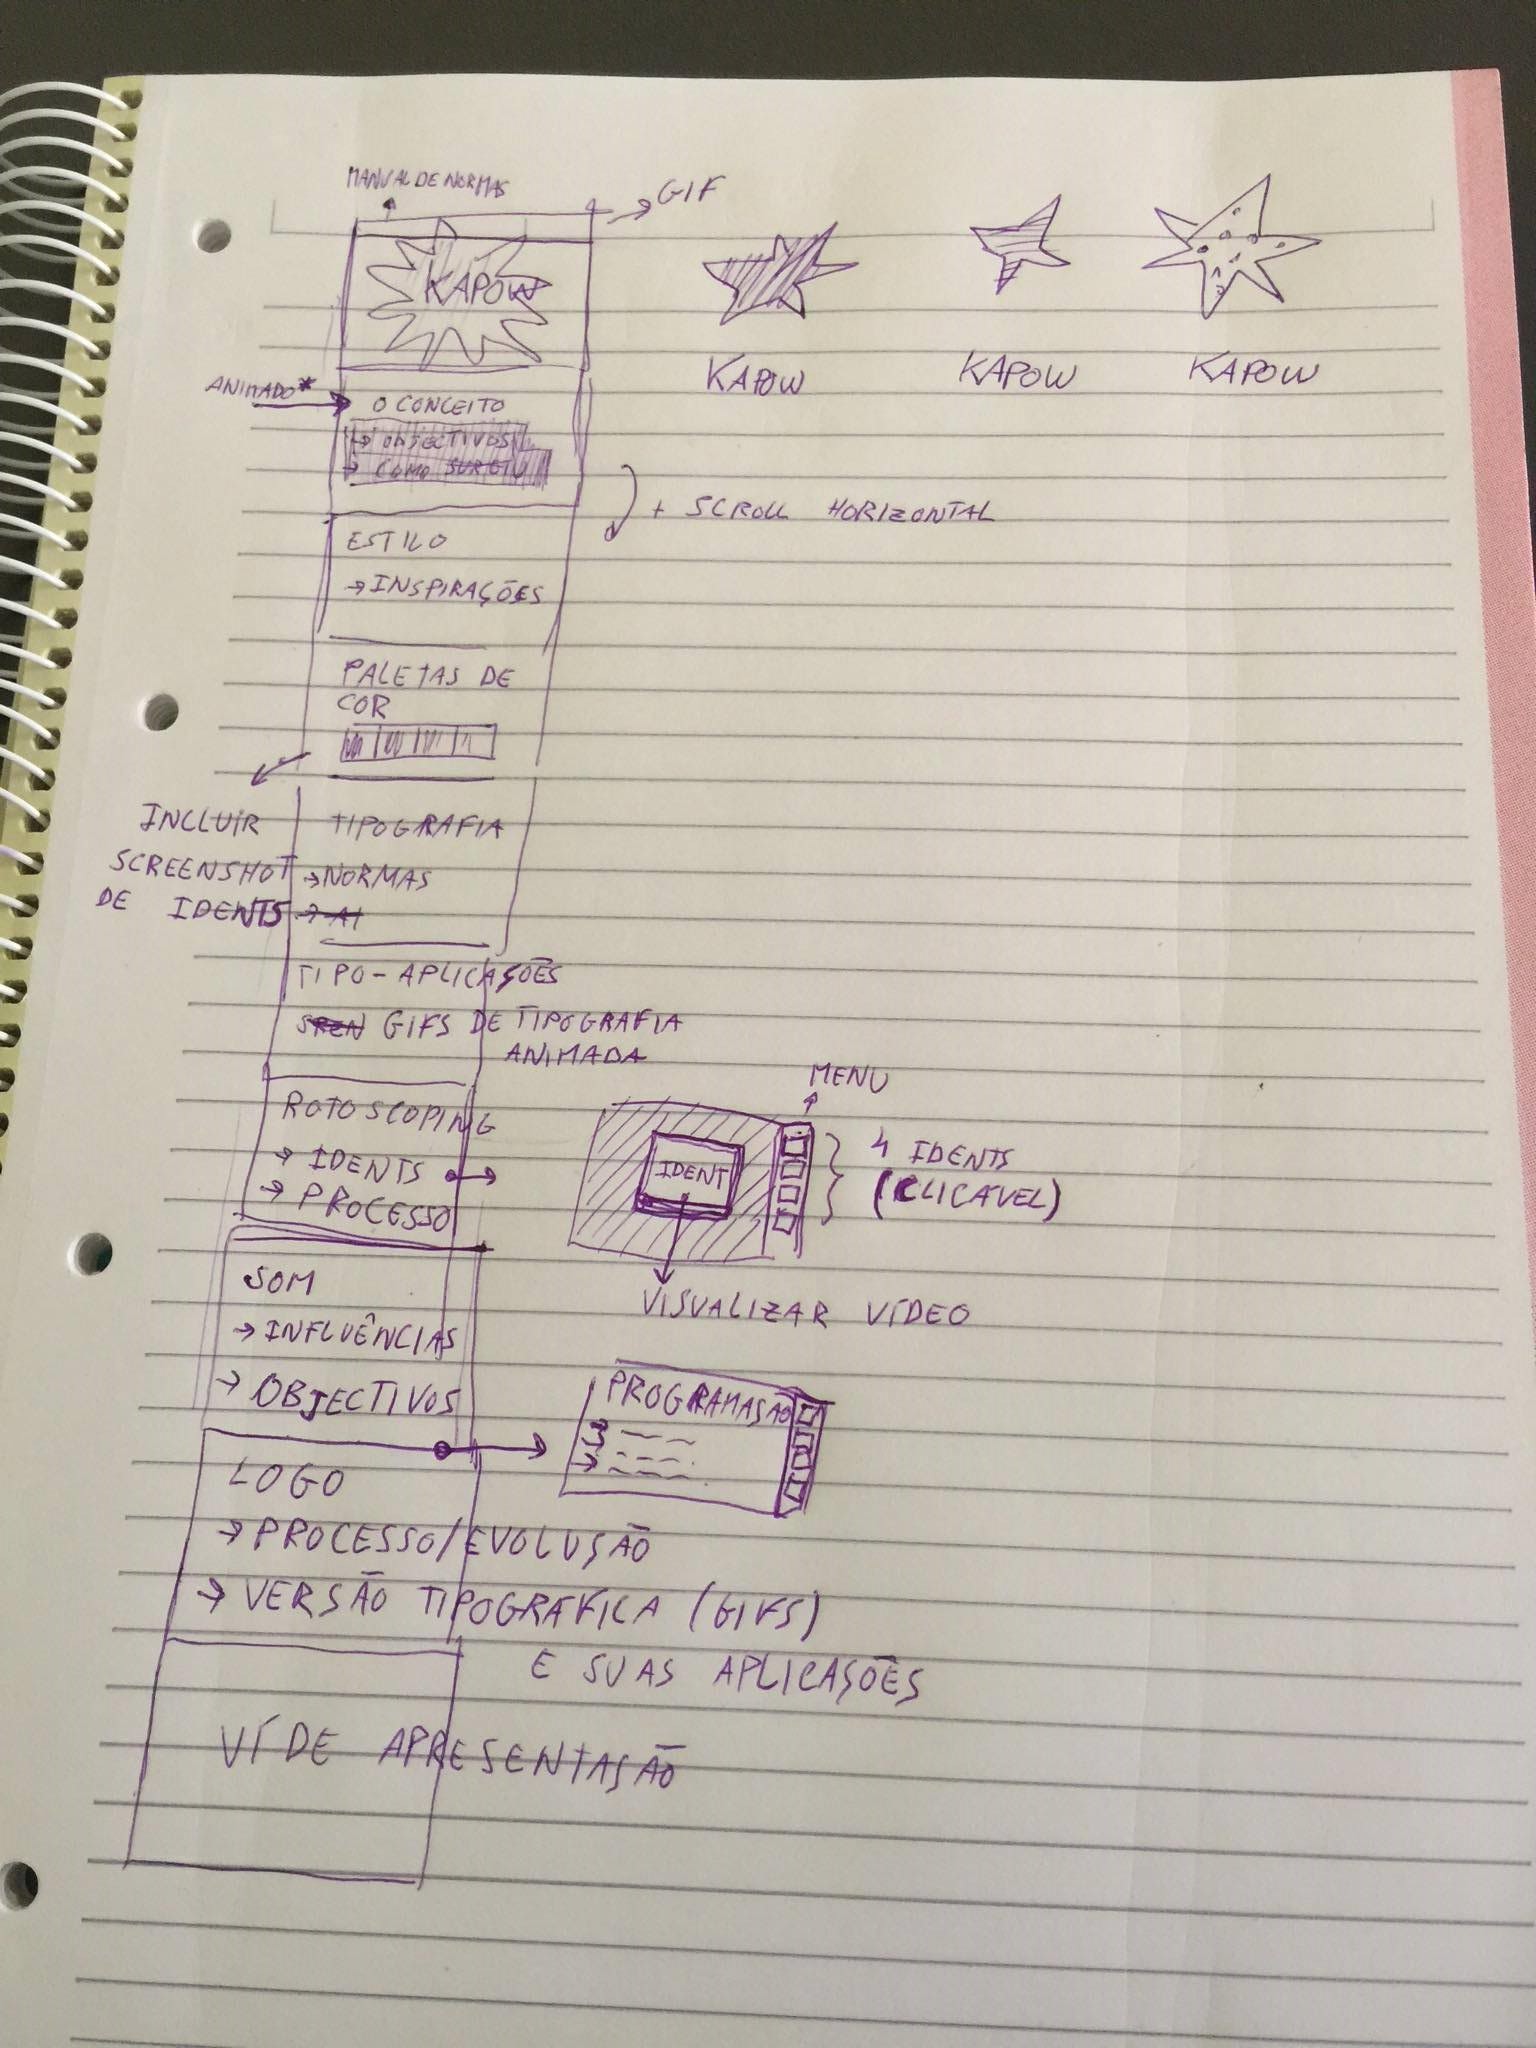 MANUAL DE NORMAS
GIF
KAPOW
KAPOW
KAPOW
KAPOW
ANIMADO*
O CONCEITO
→ OBJECTIVOS
→ COMO SURGIU
+ SCROLL HORIZONTAL
ESTILO
→ INSPIRAÇÕES
PALETAS DE
COR
INCLUIR
SCREENSHOT
DE IDENTS
TIPOGRAFIA
→ NORMAS
TIPO-APLICAÇÕES
GIFS DE TIPOGRAFIA
ANIMADA
ROTOSCOPING
→ IDENTS
→ PROCESSO
MENU
IDENT
4 IDENTS
(CLICÁVEL)
VISUALIZAR VÍDEO
SOM
→ INFLUÊNCIAS
→ OBJECTIVOS
PROGRAMAÇÃO
LOGO
→ PROCESSO/EVOLUÇÃO
→ VERSÃO TIPOGRÁFICA (GIFS)
E SUAS APLICAÇÕES
VÍDE APRESENTAÇÃO